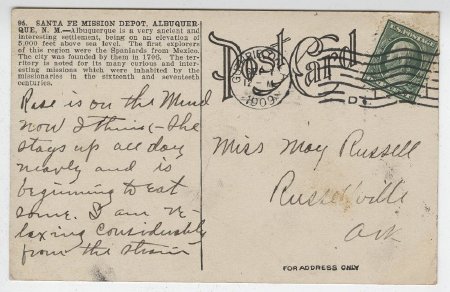 96. SANTA FE MISSION DEPOT, ALBUQUER-
QUE, N. M.—Albuquerque is a very ancient and
interesting settlement, being on an elevation of
5,000 feet above sea level. The first explorers
of this region were the Spaniards from Mexico.
The city was founded by them in 1706. The ter-
ritory is noted for its many curious and inter-
esting missions which were inhabited by the
missionaries in the sixteenth and seventeenth
centuries.
Post Card
1909
D
Rose is on the Mend
now I think— She
stays up all day
nearly and is
beginning to eat
some. I am re-
laxing considerably
from the strain
Miss May Russell
Russellville
Ark
FOR ADDRESS ONLY